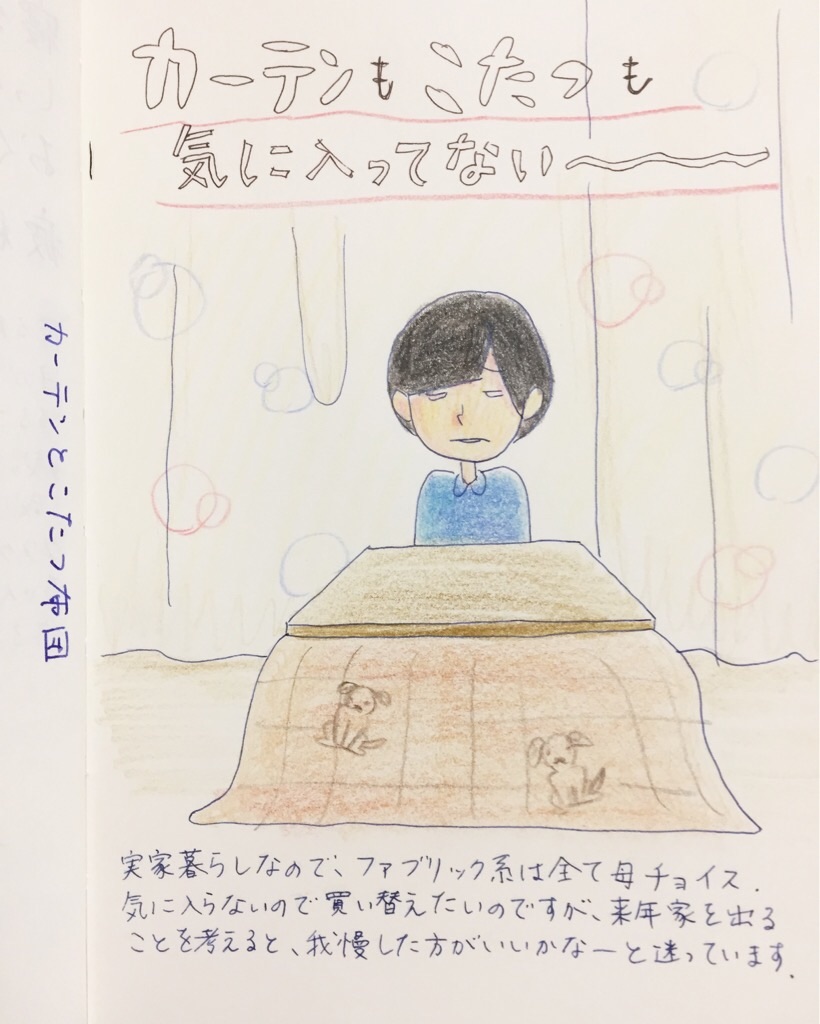 カーテンも こたつも
気に入ってない〜
カーテンとこたつ布団
実家暮らしなので、ファブリック系は全て母チョイス.
気に入らないので買い替えたいのですが、来年家を出る
ことを考えると、我慢した方がいいかなーと迷っています.